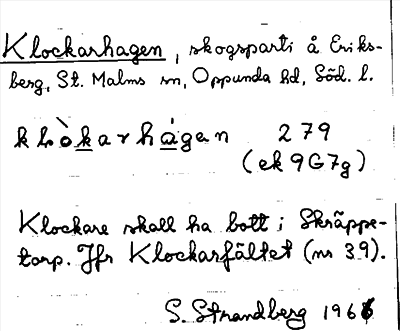 Klockarhagen, skogsparti å Eriks-
berg, St. Malms sn, Oppunda hd, Söd. l.
klòkarhágen 279
(ek 9G7g)
Klockare skall ha bott i Skräppe-
torp. Jfr Klockarfältet (nr 39).
S. Strandberg 1966